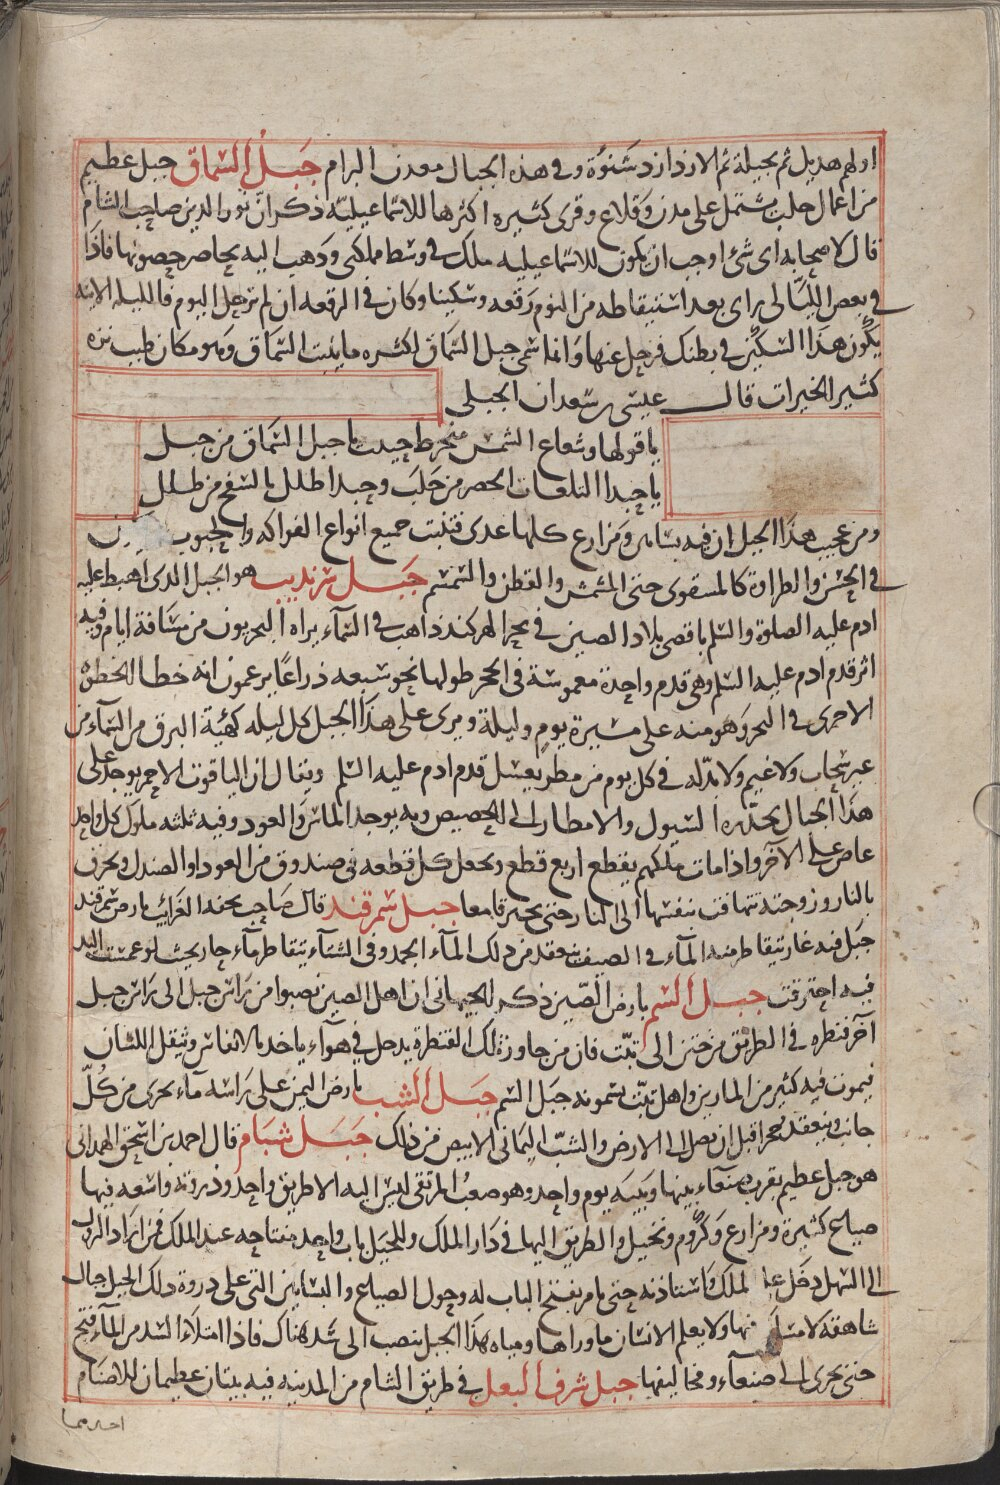 اولهم هذيل ثم بجيلة ثم الازد ازد شنوءة وفي هذه الجبال معدن البرام جبل السماق جبل عظيم
من اعمال حلب يشتمل على مدن وقلاع وقرى كثيرة اكثرها للاسماعيلية ذكر ان نور الدين صاحب الشام
قال لاصحابه اى شئ اوجب ان يكون للاسماعيلية ملك في وسط مملكتى وذهب اليه يحاصر حصونها فاذا
في بعض الليالى راى بعد استيقاظه من النوم رقعة وسكينا وكان في الرقعة ان لم ترحل اليوم فالليلة الاتية
يكون هذا السكين في بطنك فرحل عنها وانما سمى جبل السماق لكثرة ما ينبت السماق وهو مكان طيب نزه
كثير الخيرات قال عيسى بن سعدان الجبلى
يا قولها وشعاع الشمس منخرط حييت يا جبل السماق من جبل
يا حبذا التلعات الخضر من حلب وحبذا طلل بالسفح من طلل
ومن عجيب هذا الجبل ان فيه بساتين ومزارع كلها عذى فتنبت جميع انواع الفواكه والحبوب
في الحسن والطراوة كالمسقوى حتى المشمش والقطن والسمسم جبل سرنديب هو الجبل الذى اهبط عليه
ادم عليه الصلوة والسلم باقصى بلاد الصين في بحر الهركند ذاهب في السماء يراه البحريون من مسافة ايام وفيه
اثر قدم ادم عليه السلم وهى قدم واحدة مغموسة فى الحجر طولها نحو سبعة ذراعا يزعمون انه خطا الخطوة
الاخرى في البحر وهو منه على مسيرة يوم وليلة ويرى على هذا الجبل كل ليلة كهيئة البرق من السماء من
غير سحاب ولا غيم ولا بد له في كل يوم من مطر يغسل قدم ادم عليه السلم ويقال ان الياقوت الاحمر يوجد على
هذا الجبال يحدره السيول والامطار الى الحضيض وبه يوجد الماس والعود وفيه ثلثه ملوك كل واحد
عاص على الآخر واذا مات ملكهم يقطع اربع قطع ويجعل كل قطعه في صندوق من العود او الصندل ويحرق
بالنار وزوجته تتهافت بنفسها الى النار حتى يحترقا معا جبل سمرقند قال صاحب تحفة الغرائب بارض سمرقند
جبل فيه غار يتقاطر منه الماء في الصيف ينعقد من ذلك الماء الجمد وفى الشتاء يتقاطر ماء حار بحيث لو غمست اليد
فيه احترقت جبل السم بارض الصين ذكر الجيهانى ان اهل الصين نصبوا من راس جبل الى راس جبل
آخر قنطرة في الطريق من ختن الى تبت فان من جاوز تلك القنطرة يدخل في هوآء ياخذ بالانفاس ويثقل اللسان
فيموت فيه كثير من المارين واهل تبت يسمونه جبل السم جبل الشب بارض اليمن على راسه مآء يجرى من كل
جانب وينعقد حجرا قبل ان يصل الى الارض والشب اليمانى الابيض من ذلك جبل شبام قال احمد بن اسحق الهمدانى
هو جبل عظيم بقرب صنعآء بينها وبينه يوم واحد وهو صعب المرتقى ليس اليه الا طريق واحد وذروته واسعه فيها
ضياع كثيرة ومزارع وكروم ونخيل والطريق اليها في دار الملك وللجبل باب واحد مفتاحه عند الملك فمن اراد النزول
الى السهل دخل على الملك واستاذنه حتى يامر بفتح الباب له وحول الضياع والبساتين التى على ذروة ذلك الجبل جبال
شاهقة لا مسلك فيها ولا يعلم الانسان ما ورآها ومياه هذا الجبل ينصب الى سد هناك فاذا امتلاء السد من المآء فتح
حتى يجرى الى صنعآء ومخاليفها جبل شرف البعل في طريق الشام من المدينه فيه بيتان عظيمان للاصنام
احدهما